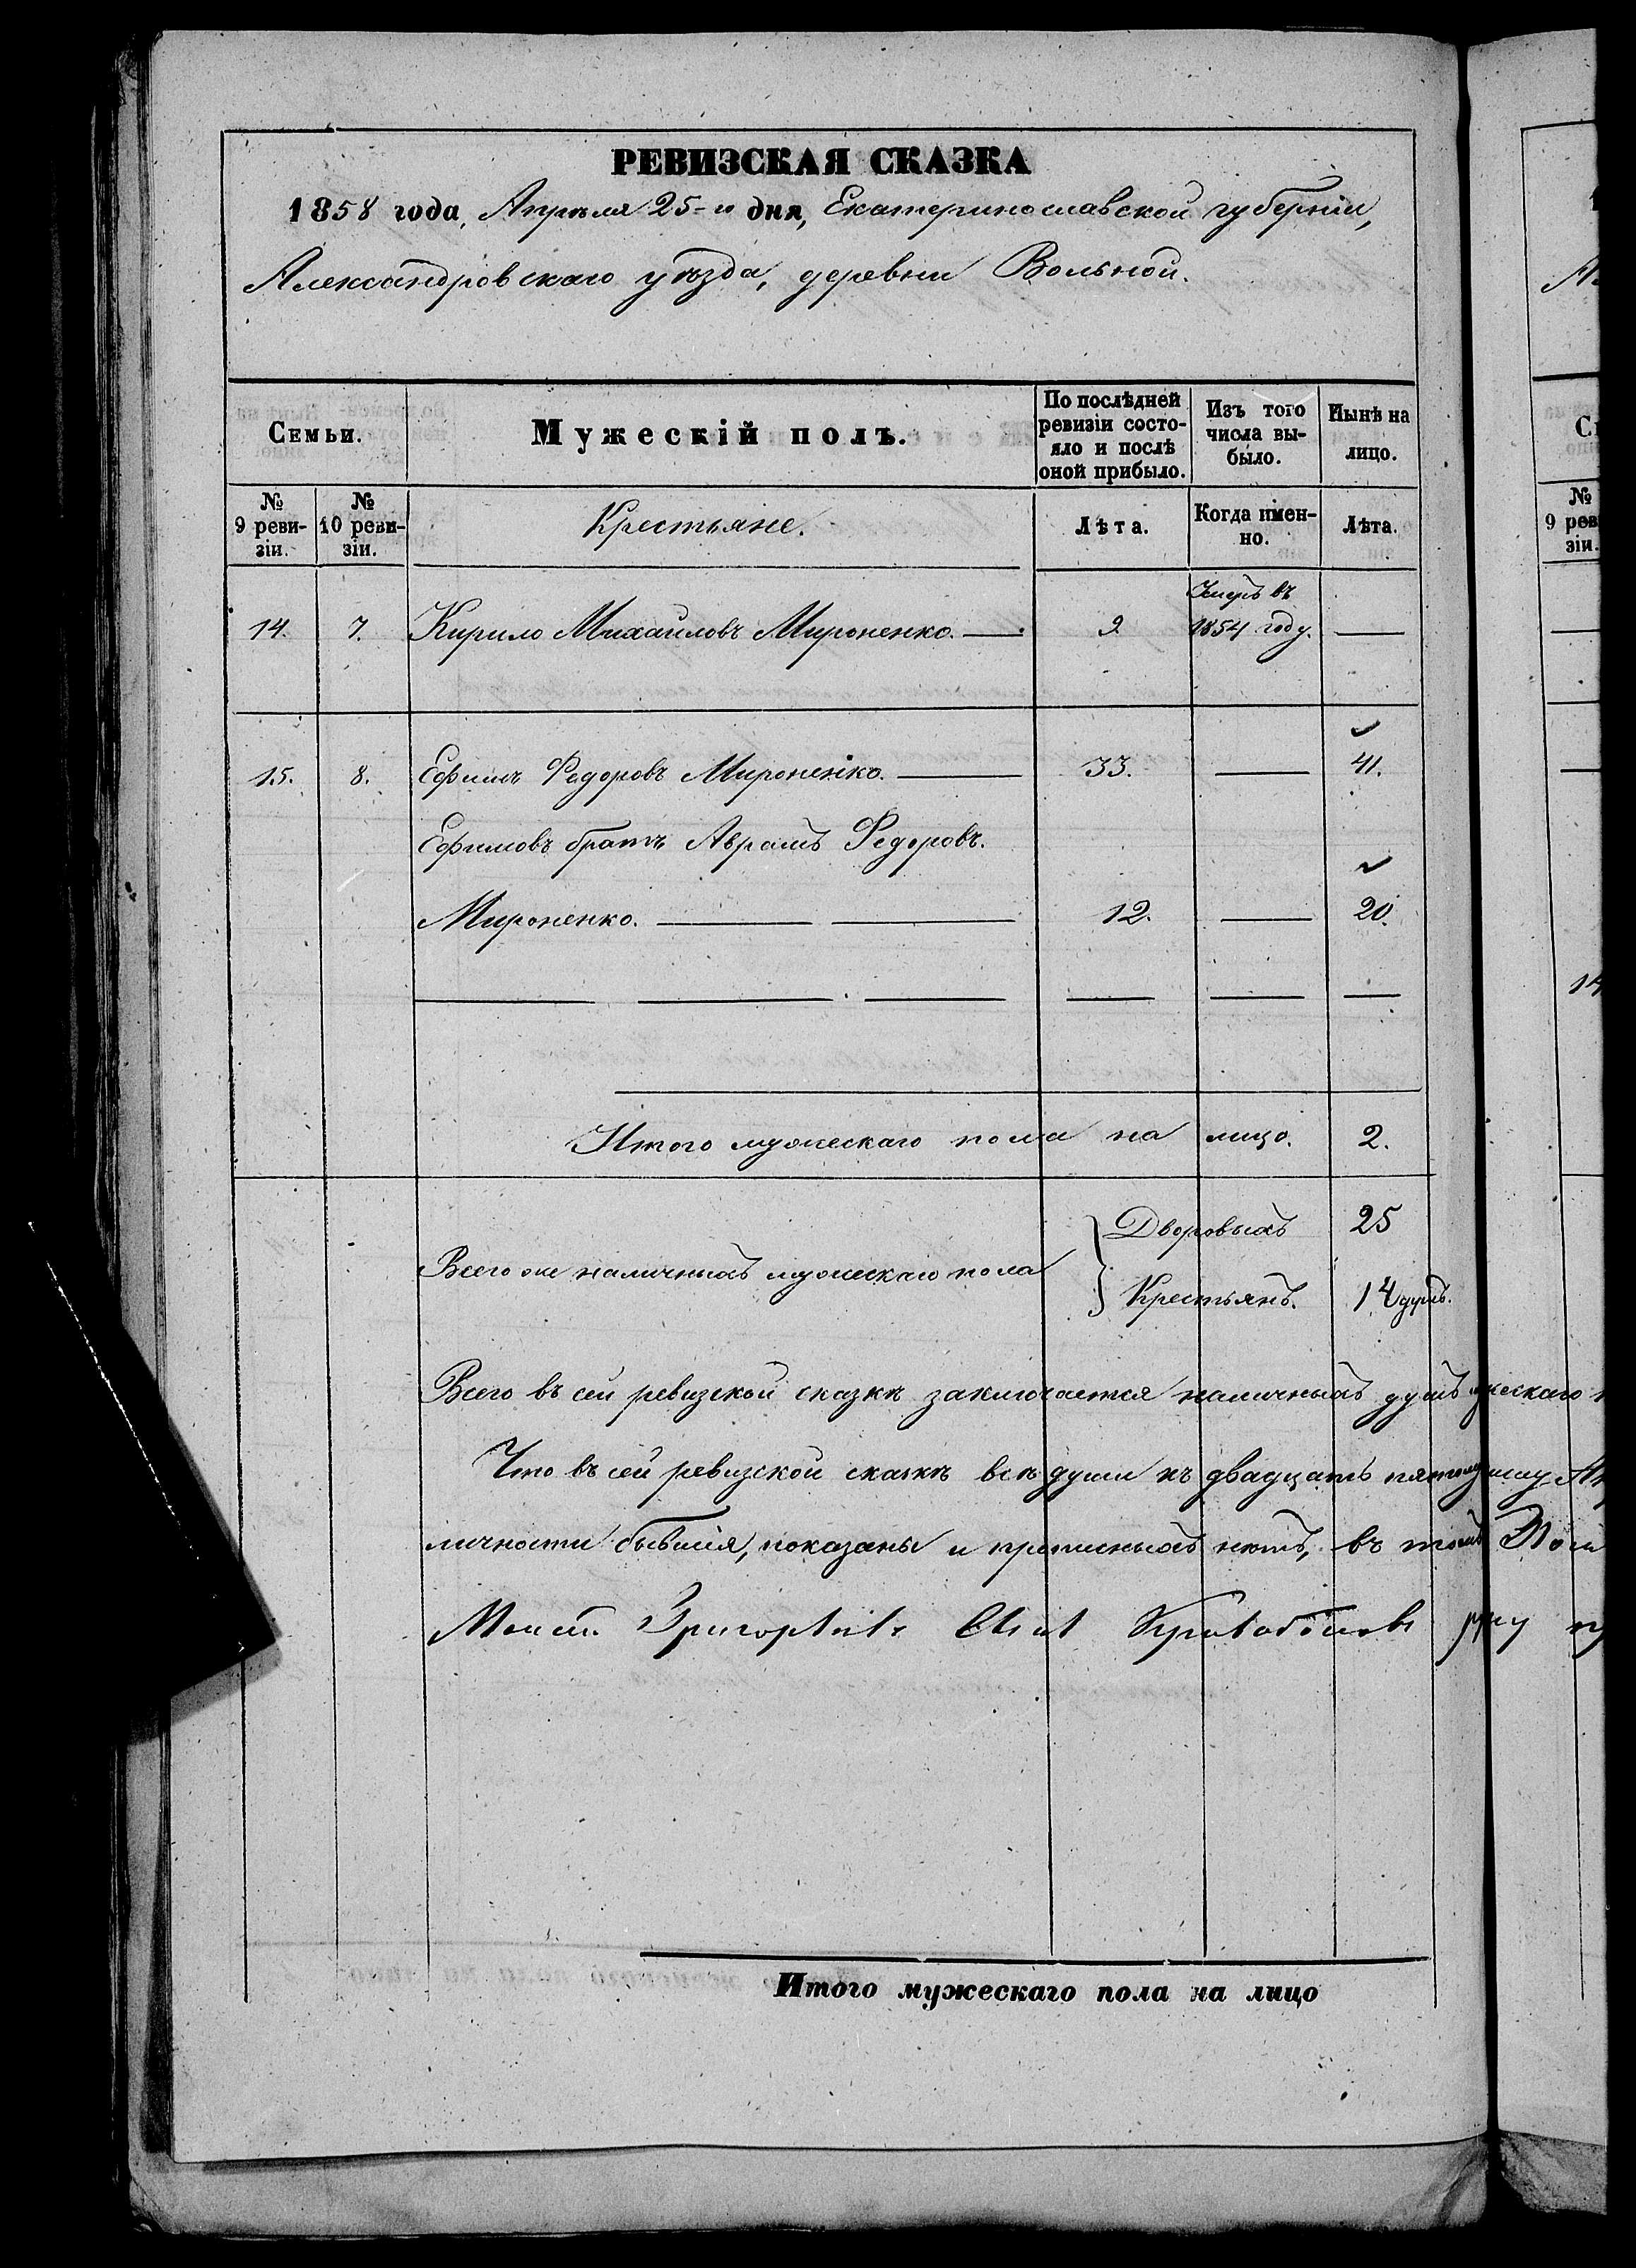 РЕВИЗСКАЯ СКАЗКА
1858 года, Апрѣля 25-го дня, Екатеринославской губерніи,
Александровскаго уѣзда, деревни Вольной.
Семьи. Мужескій полъ. По послѣдней ревизіи состояло и послѣ оной прибыло. Изъ того числа выбыло. Нынѣ на лицо.
№ 9 ревизіи. № 10 ревизіи. Крестьяне. Лѣта. Когда именно. Лѣта.
14. 7. Кирило Михайловъ Мироненко. 2 Умеръ въ 1854 году.
15. 8. Ефимъ Федоровъ Мироненко. 33. 41.
Ефимовъ братъ Аврамъ Федоровъ.
Мироненко. 12. 20.
Итого мужескаго пола на лицо. 2.
Дворовыхъ 25
Всего же наличныхъ мужескаго пола
Крестьянъ. 14 душъ.
Всего въ сей ревизской сказкѣ заключается наличныхъ душъ
Что въ сей ревизской сказкѣ всѣ души къ двадцать
личности бывшія, показаны и прописныхъ нѣтъ, въ томъ
руку
Итого мужескаго пола на лицо